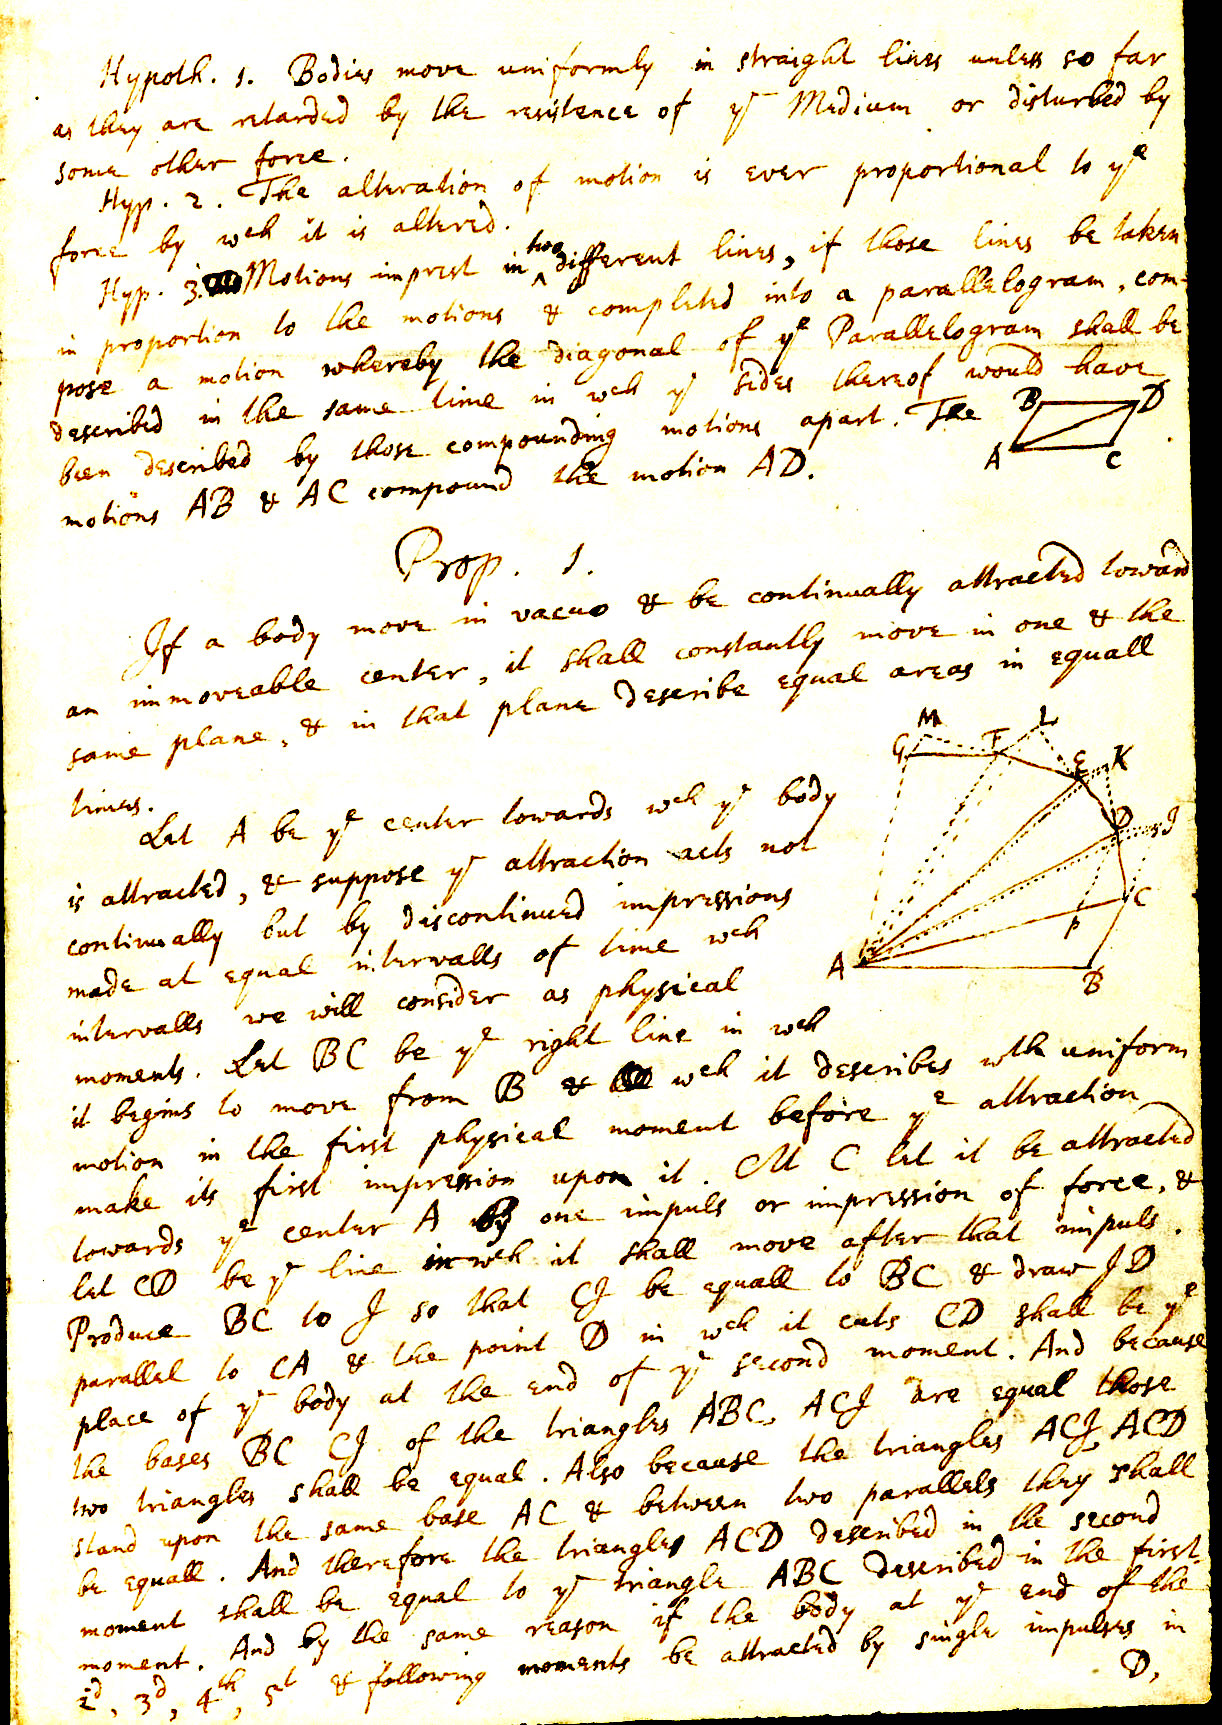 Hypoth. 1. Bodies move uniformly in straight lines unless so far
as they are retarded by the resistence of yᵉ Medium or disturbed by
some other force.
Hyp. 2. The alteration of motion is ever proportional to yᵉ
force by wᶜʰ it is altered.
Hyp. 3. Motions imprest in two different lines, if those lines be taken
in proportion to the motions & completed into a parallelogram, com-
pose a motion whereby the diagonal of yᵉ Parallelogram shall be
described in the same time in wᶜʰ yᵉ sides thereof would have
been described by those compounding motions apart. The
motions AB & AC compound the motion AD.
B D
A C
Prop. 1.
If a body move in vacuo & be continually attracted toward
an immoveable center, it shall constantly move in one & the
same plane, & in that plane describe equal areas in equall
times.
Let A be yᵉ center towards wᶜʰ yᵉ body
is attracted, & suppose yᵉ attraction acts not
continually but by discontinued impressions
made at equal intervalls of time wᶜʰ
intervalls we will consider as physical
moments. Let BC be yᵉ right line in wᶜʰ
it begins to move from B & wᶜʰ it describes wᵗʰ uniform
motion in the first physical moment before yᵉ attraction
make its first impression upon it. At C let it be attracted
towards yᵉ center A by one impuls or impression of force, &
let CD be yᵉ line in wᶜʰ it shall move after that impuls.
Produce BC to I so that CI be equall to BC & draw ID
parallel to CA & the point D in wᶜʰ it cuts CD shall be yᵉ
place of yᵉ body at the end of yᵉ second moment. And because
the bases BC CI of the triangles ABC, ACI are equal those
two triangles shall be equal. Also because the triangles ACI, ACD
stand upon the same base AC & between two parallels they shall
be equall. And therefore the triangle ACD described in the second
moment shall be equal to yᵉ triangle ABC described in the first
moment. And by the same reason if the body at yᵉ end of the
2ᵈ, 3ᵈ, 4ᵗʰ, 5ᵗ & following moments be attracted by single impulses in
D,
M L
G F
E K
D I
C
P
A
B